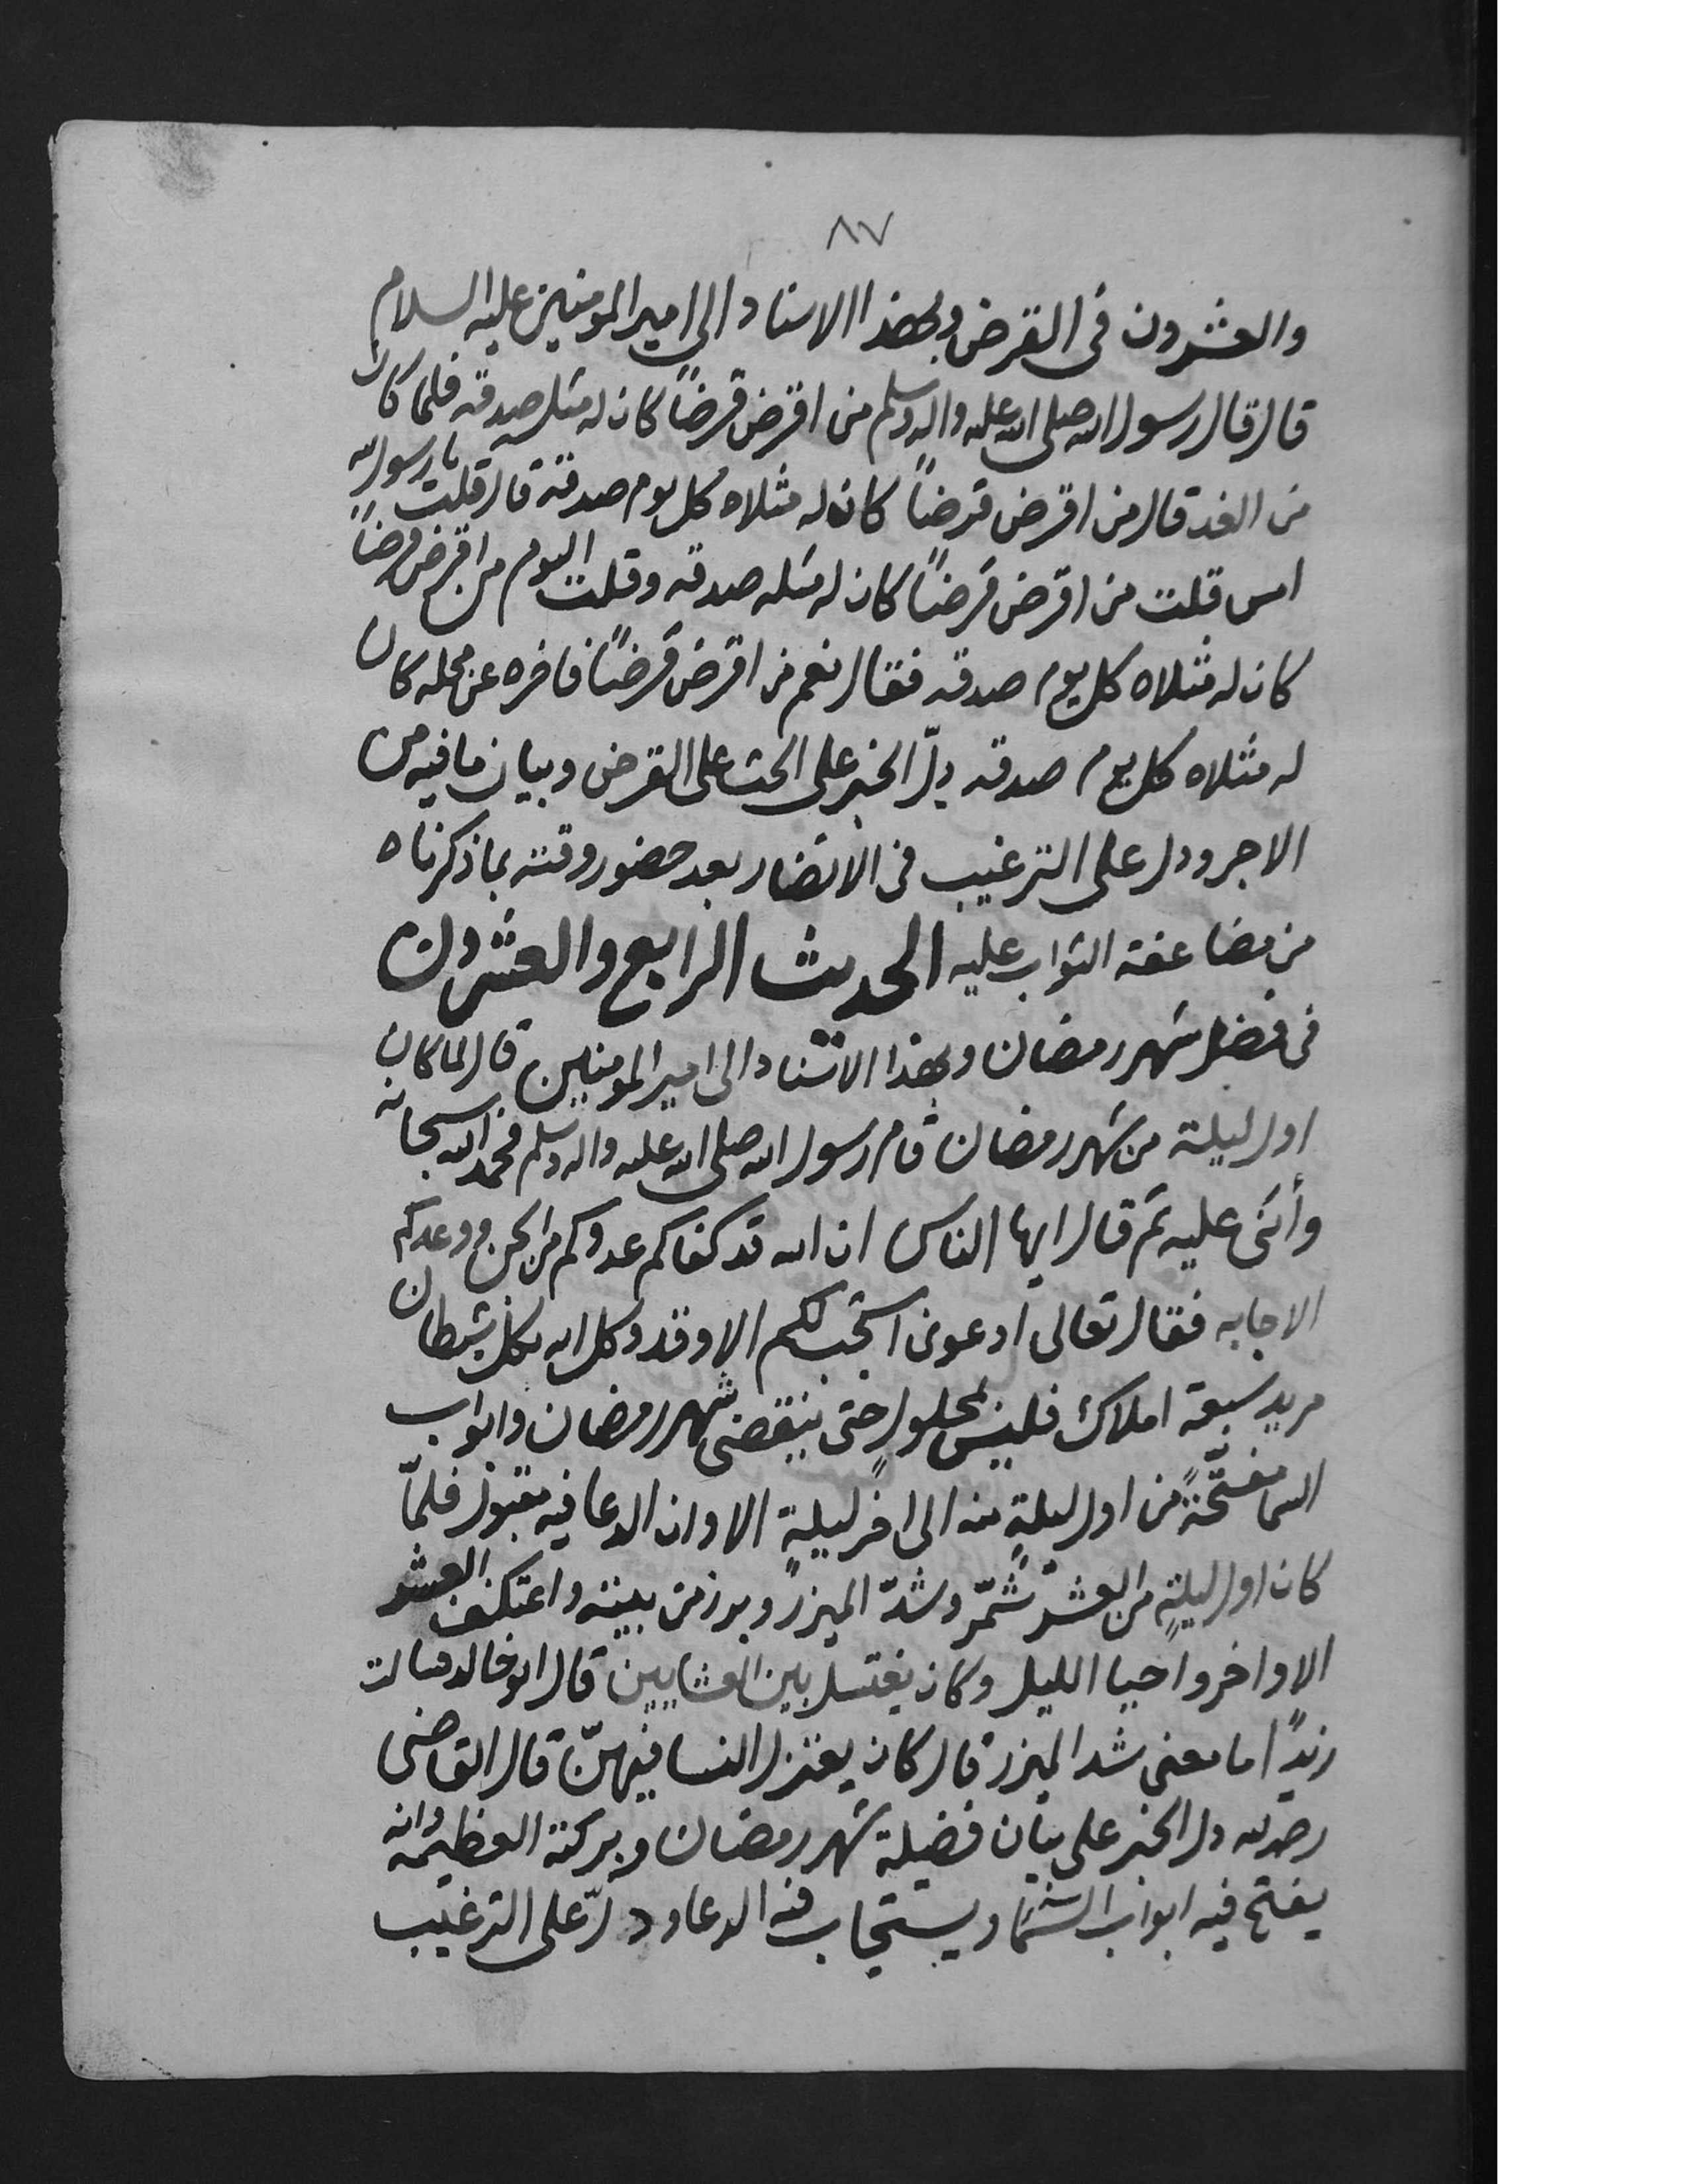 ٨٧
والعشرون فى القرض وبهذا الاسناد الى امير المومنين عليه السلام
قال قال رسول الله صلى الله عليه واله وسلم من اقرض قرضاً كان له مثله صدقه فلما كان
من الغد قال من اقرض قرضاً كان له مثلاه كل يوم صدقة قال قلت يا رسول الله
امس قلت من اقرض قرضاً كان له مثله صدقه وقلت اليوم من اقرض قرضاً
كان له مثلاه كل يوم صدقه فقال نعم من اقرض قرضاً فاخره عن محله كان
له مثلاه كل يوم صدقه دلّ الخبر على الحث على القرض وبيان ما فيه من
الاجر ودل على الترغيب فى الانضار بعد حضور وقته بما ذكرناه
من مضاعفة الثواب عليه الحديث الرابع والعشرون
فى فضل شهر رمضان وبهذا الاسناد الى امير المومنين قال لما كان
اول ليلة من شهر رمضان قام رسول الله صلى الله عليه واله وسلم فحمد الله سبحانه
وأثنى عليه ثم قال ايها الناس ان الله قد كفاكم عدوكم من الجن ووعدكم
الاجابه فقال تعالى ادعونى استجب لكم الا وقد وكل الله بكل شيطان
مريد سبعة املاك فليس بمحلول حتى ينقضى شهر رمضان وابواب
السما مفتّحةً من اول ليلةٍ منه الى اخر ليلةٍ الا وان الدعا فيه مقبول فلمّا
كان اول ليلةٍ من العشر شمّر وشدّ الميزر وبرز من بيته واعتكف العشر
الاواخر واحيا الليل وكان يغتسل بين العشايين قال ابو خالد سالت
زيداً ما معنى شد الميزر قال كان يعتزل النسا فيهنّ قال القاضى
رحمه الله دل الخبر على بيان فضيلة شهر رمضان وبركته العظيمه وانه
يفتح فيه ابواب السما ويستجاب فيه الدعا ودلّ على الترغيب